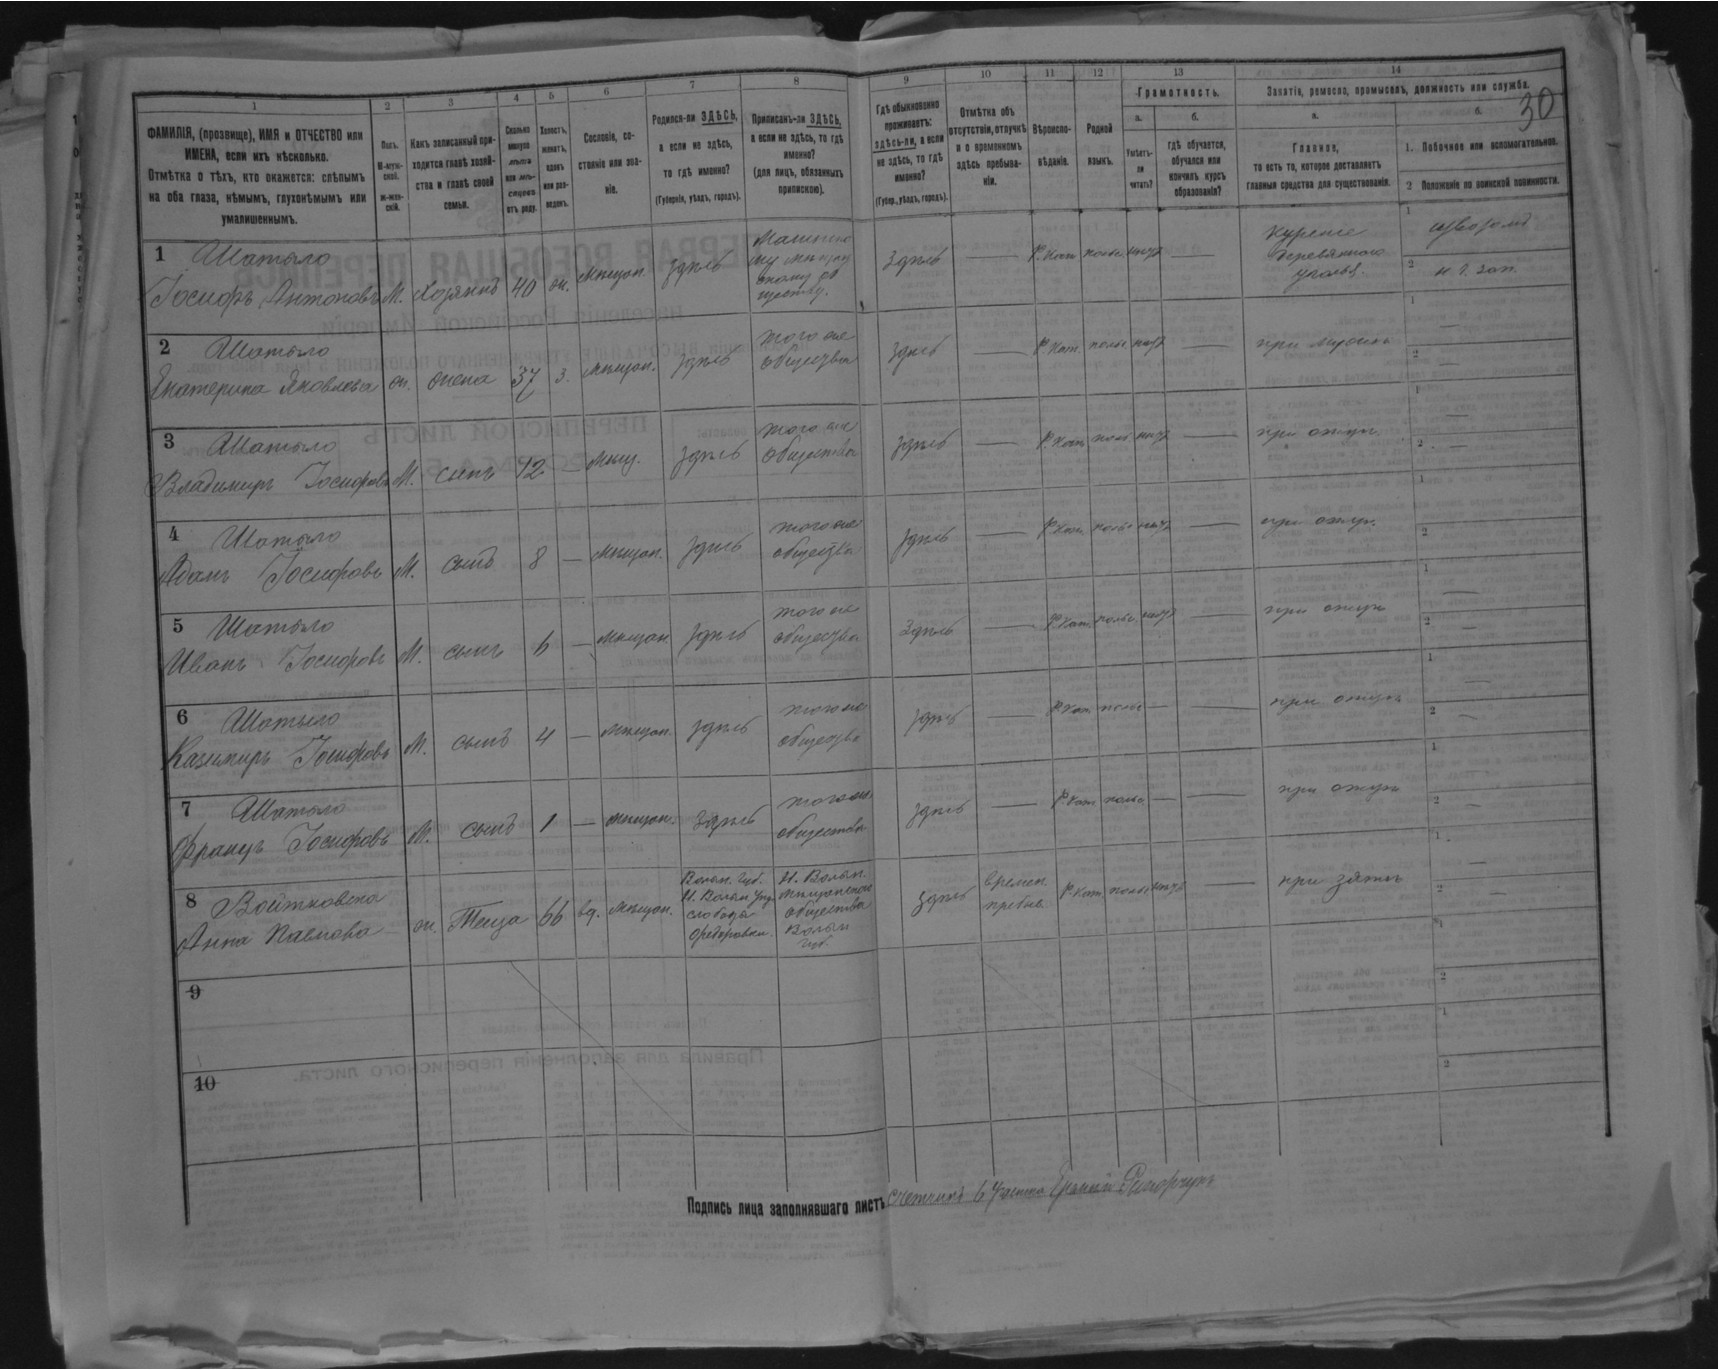 1 2 3 4 5 6 7 8 9 10 11 12 13 14
30
ФАМИЛІЯ, (прозвище), ИМЯ и ОТЧЕСТВО или
ИМЕНА, если ихъ нѣсколько.
Отмѣтка о тѣхъ, кто окажется: слѣпымъ
на оба глаза, нѣмымъ, глухонѣмымъ или
умалишеннымъ.
Полъ.
М-муж-
ской.
ж-жен-
скій.
Какъ записанный при-
ходится главѣ хозяй-
ства и главѣ своей
семьи.
Сколько
минуло
лѣтъ
или мѣ-
сяцевъ
отъ роду.
Холостъ,
женатъ,
вдовъ
или раз-
веденъ.
Сословіе, со-
стояніе или зва-
ніе.
Родился-ли ЗДѢСЬ,
а если не здѣсь,
то гдѣ именно?
(Губернія, уѣздъ, городъ).
Приписанъ-ли ЗДѢСЬ,
а если не здѣсь, то гдѣ
именно?
(для лицъ, обязанныхъ
припискою).
Гдѣ обыкновенно
проживаетъ:
здѣсь-ли, а если
не здѣсь, то гдѣ
именно?
(Губер., уѣздъ, городъ).
Отмѣтка объ
отсутствіи, отлучкѣ
и о временномъ
здѣсь пребыва-
ніи.
Вѣроиспо-
вѣданіе.
Родной
языкъ.
Грамотность.
а.
Умѣетъ-
ли
читать?
б.
Гдѣ обучается,
обучался или
кончилъ курсъ
образованія?
Занятіе, ремесло, промыселъ, должность или служба.
а.
Главное,
то есть то, которое доставляетъ
главныя средства для существованія.
б.
1. Побочное или вспомогательное.
2 Положеніе по воинской повинности.
1 Шатыло
Іосифъ Антоновъ М. Хозяинъ 40 ж. мѣщан. здѣсь
обществу.
здѣсь — Р. Кат. польс. нѣтъ —
Куреніе
деревяннаго
угля.
1 извозомъ
2
2 Шатыло
Екатерина Яковлева ж. жена 37 з. мѣщан. здѣсь
того же
общества
здѣсь — Р. Кат. польс нѣтъ — при
1 —
2 —
3 Шатыло
Владимиръ Іосифовъ М. сынъ 12 — мѣщ. здѣсь
того же
общества
здѣсь — Р. Кат. польс нѣтъ — при отцѣ
1 —
2 —
4 Шатыло
Адамъ Іосифовъ М. сынъ 8 — мѣщан. здѣсь
того же
общества
здѣсь — Р. Кат. польс нѣтъ — при отцѣ
1
2
5 Шатыло
Иванъ Іосифовъ М. сынъ 6 — мѣщан. здѣсь
того же
общества
здѣсь — Р. Кат. польс нѣтъ — при отцѣ
1 —
2 —
6 Шатыло
Казимиръ Іосифовъ М. сынъ 4 — мѣщан. здѣсь
того же
общества
здѣсь — Р. Кат. польс — — при отцѣ
1 —
2 —
7 Шатыло
Францъ Іосифовъ М. сынъ 1 — мѣщан. здѣсь
того же
общества
здѣсь — Р. Кат. польс — — при отцѣ
1
2 —
8 Войтковска
Анна Павлова ж. Теща 66 вд. мѣщан.
Волын. губ.
Н. Волын. уѣз.
слобода
Федоровка.
Н. Волын.
мѣщанское
общества
Волын
губ.
здѣсь
времен.
пребыв.
Р. Кат. польс нѣтъ — при зятѣ
1 —
2 —
9
1
2
10
1
2
Подпись лица заполнявшаго листъ Счетчикъ 6 участка